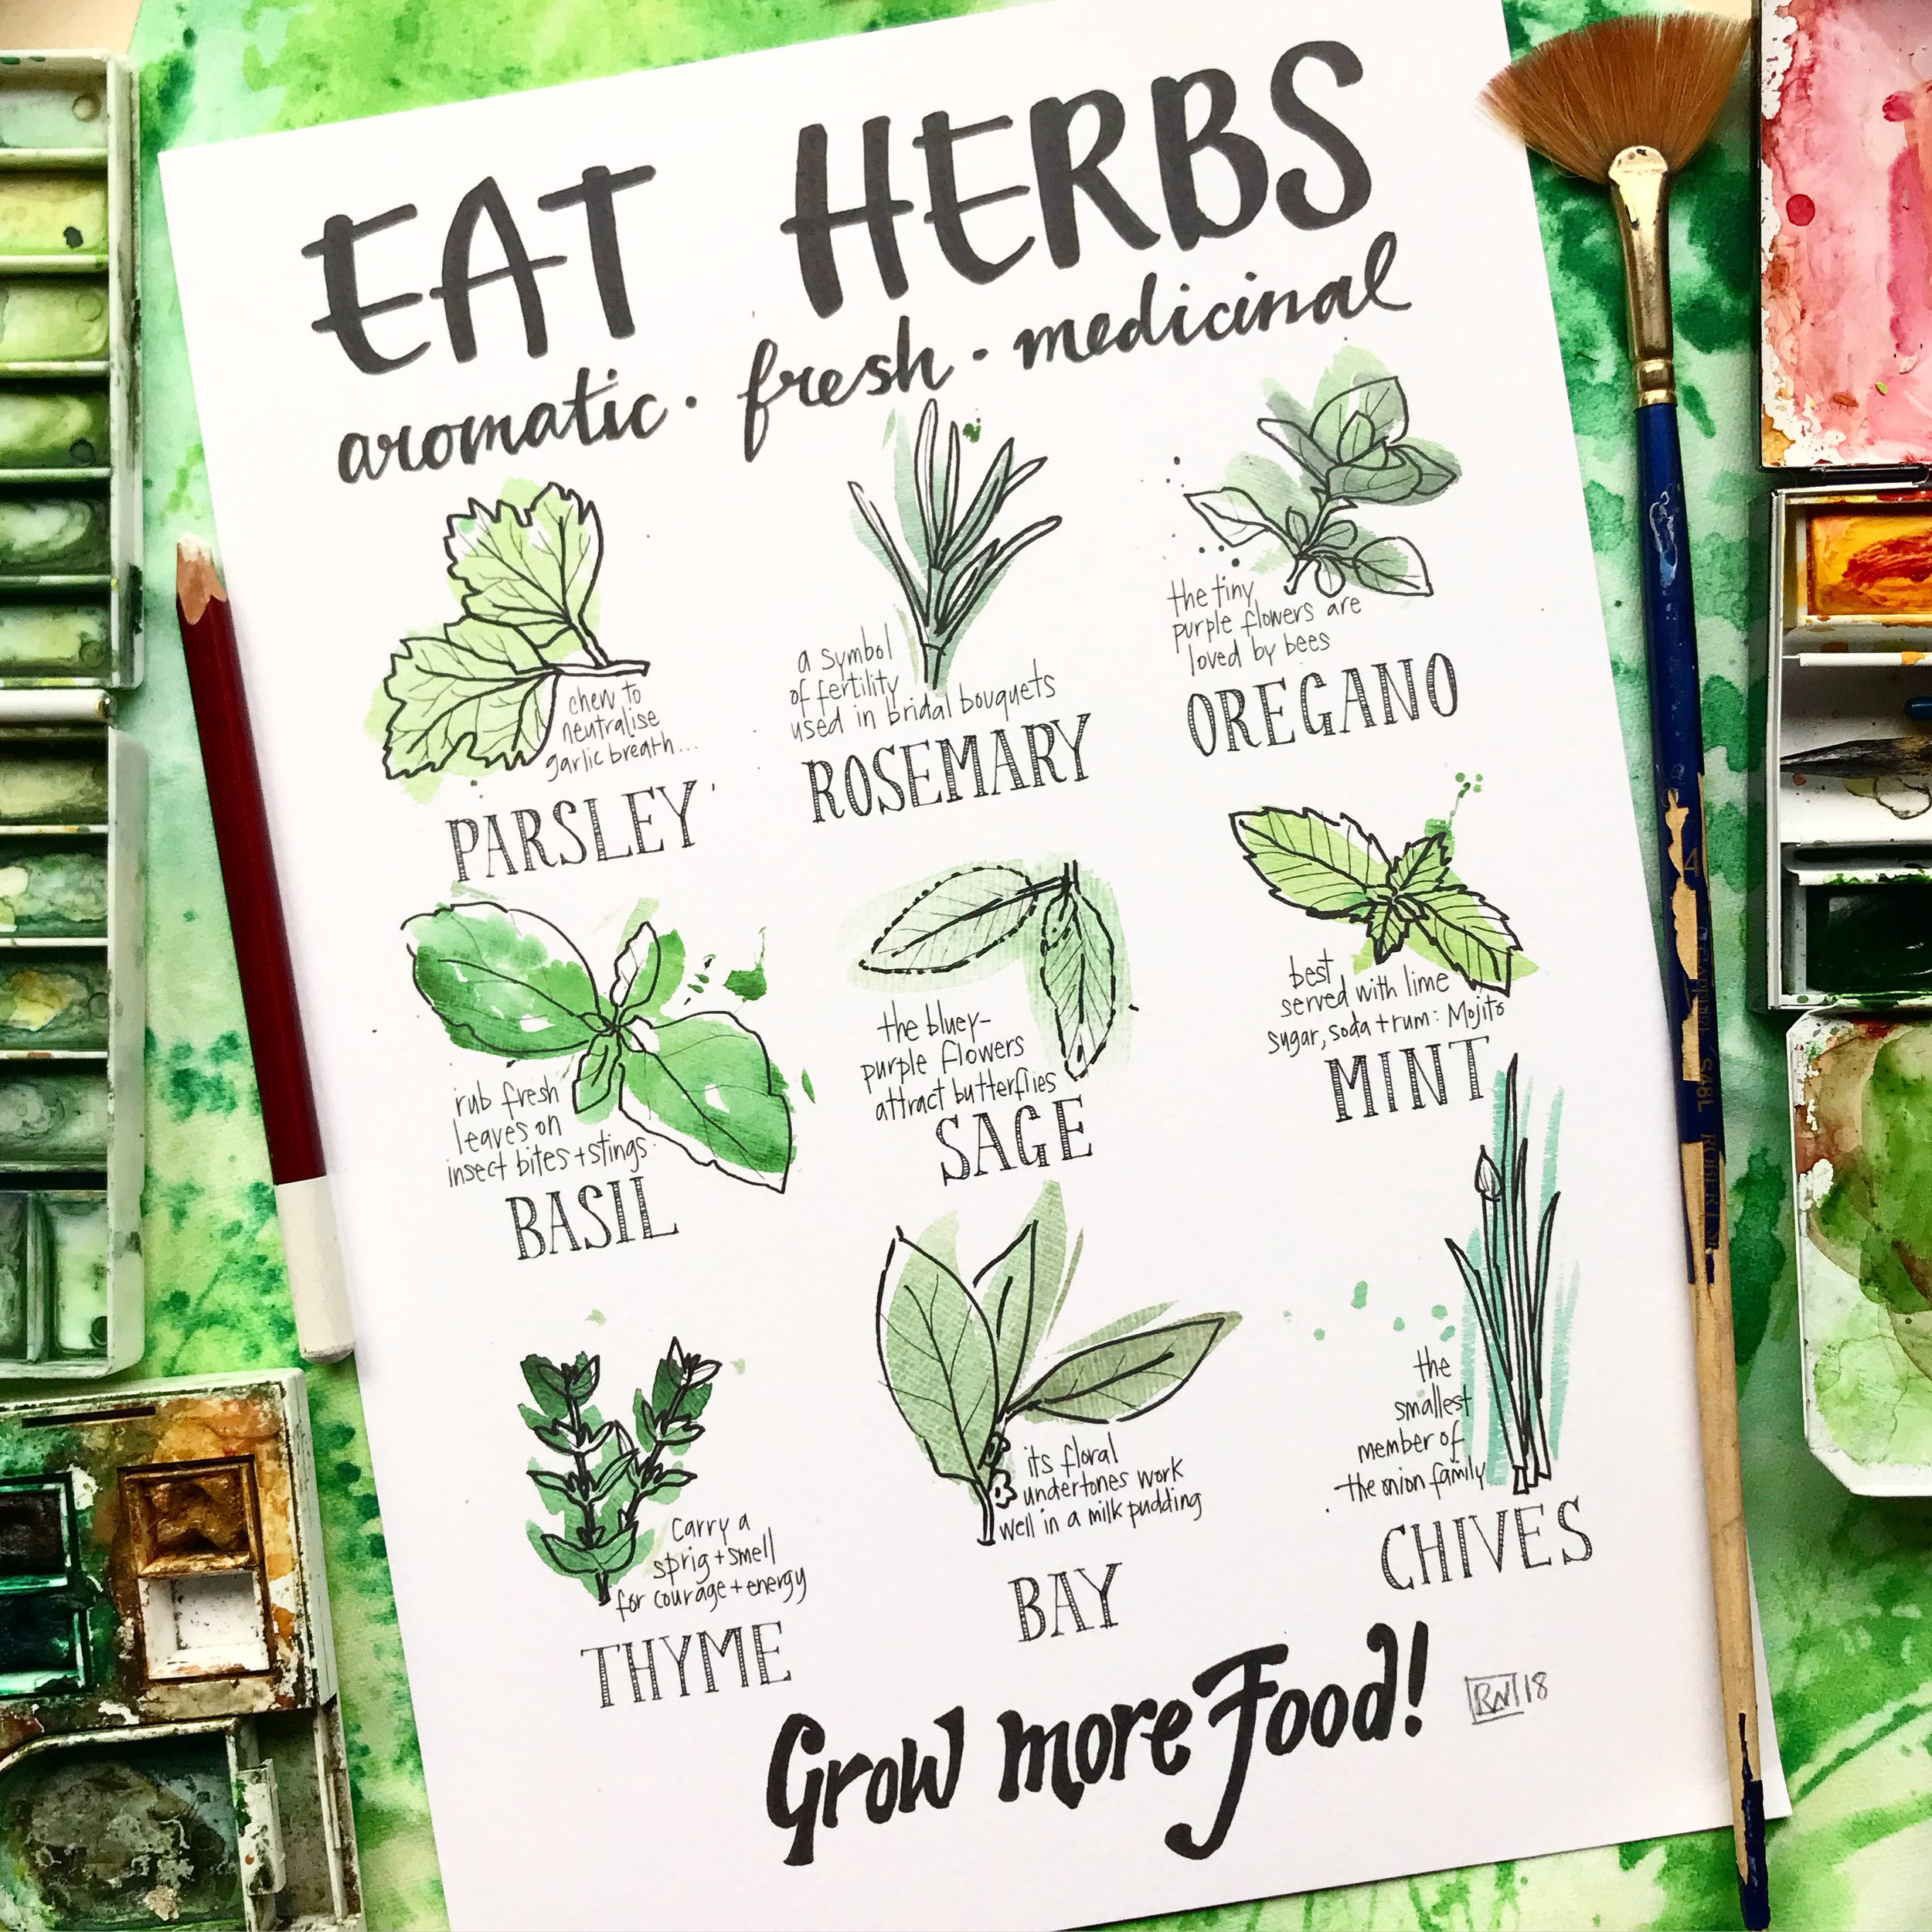 EAT HERBS
aromatic · fresh · medicinal
chew to
neutralise
garlic breath...
PARSLEY
a symbol
of fertility
used in bridal bouquets
ROSEMARY
the tiny
purple flowers are
loved by bees
OREGANO
rub fresh
leaves on
insect bites + stings
BASIL
the bluey-
purple flowers
attract butterflies
SAGE
best
served with lime
sugar, soda + rum: Mojito
MINT
Carry a
sprig + smell
for courage + energy
THYME
its floral
undertones work
well in a milk pudding
BAY
the
smallest
member of
the onion family
CHIVES
Grow more Food!
RN 18
4